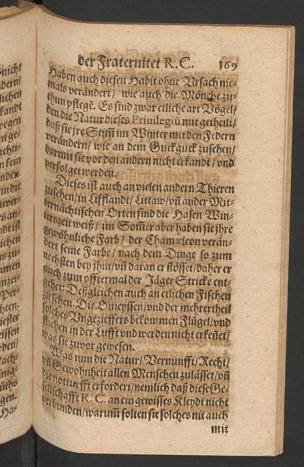 der Fraternitet R. C. 169
Haben auch diesen Habit ohne Vrsach nie-
mals verändert/ wie auch die Mönche zu
thun pflegē. Es sind zwar etliche art Vögel/
den die Natur dieses Privilegiū mit getheilt/
daß sie jre Stiñ im Winter mit den Federn
verändern/ wie an dem Guckguck zusehen/
darmit sie vor den andern nicht erkandt/ vnd
verfolget werden.
Dieses ist auch an vielen andern Thieren
zusehen/ in Liffland/ Littaw/ vñ ander Mit-
ternächtischen Orten sind die Hasen Win-
terszeit weiß/ im Som̃er aber haben sie jhre
gewöhnliche Farb/ der Chamæleon verän-
dert seine Farbe/ nach dem Dinge so zum
nechsten bey jhm/ vñ daran er stösset/ daher er
auch zum offtern al der Jäger Stricke ent-
gehet: Deßgleichen auch an etlichen Fischen
zusehen. Die Omeyssen/ vnd der mehrertheil
solches Vngeziefers bekommen Flügel/ vnd
fliehen in der Lufft vnd werden nicht erkeñet/
was sie zuvor gewesen.
Was nun die Natur/ Vernunfft/ Recht/
vñ Gewohnheit allen Menschen zulässet/ vñ
die notturfft erfordert/ nemlich daß diese Ge-
sellschafft R. C. an ein gewisses Kleydt nicht
verbunden/ warum̃ solten sie solches nit auch
mit